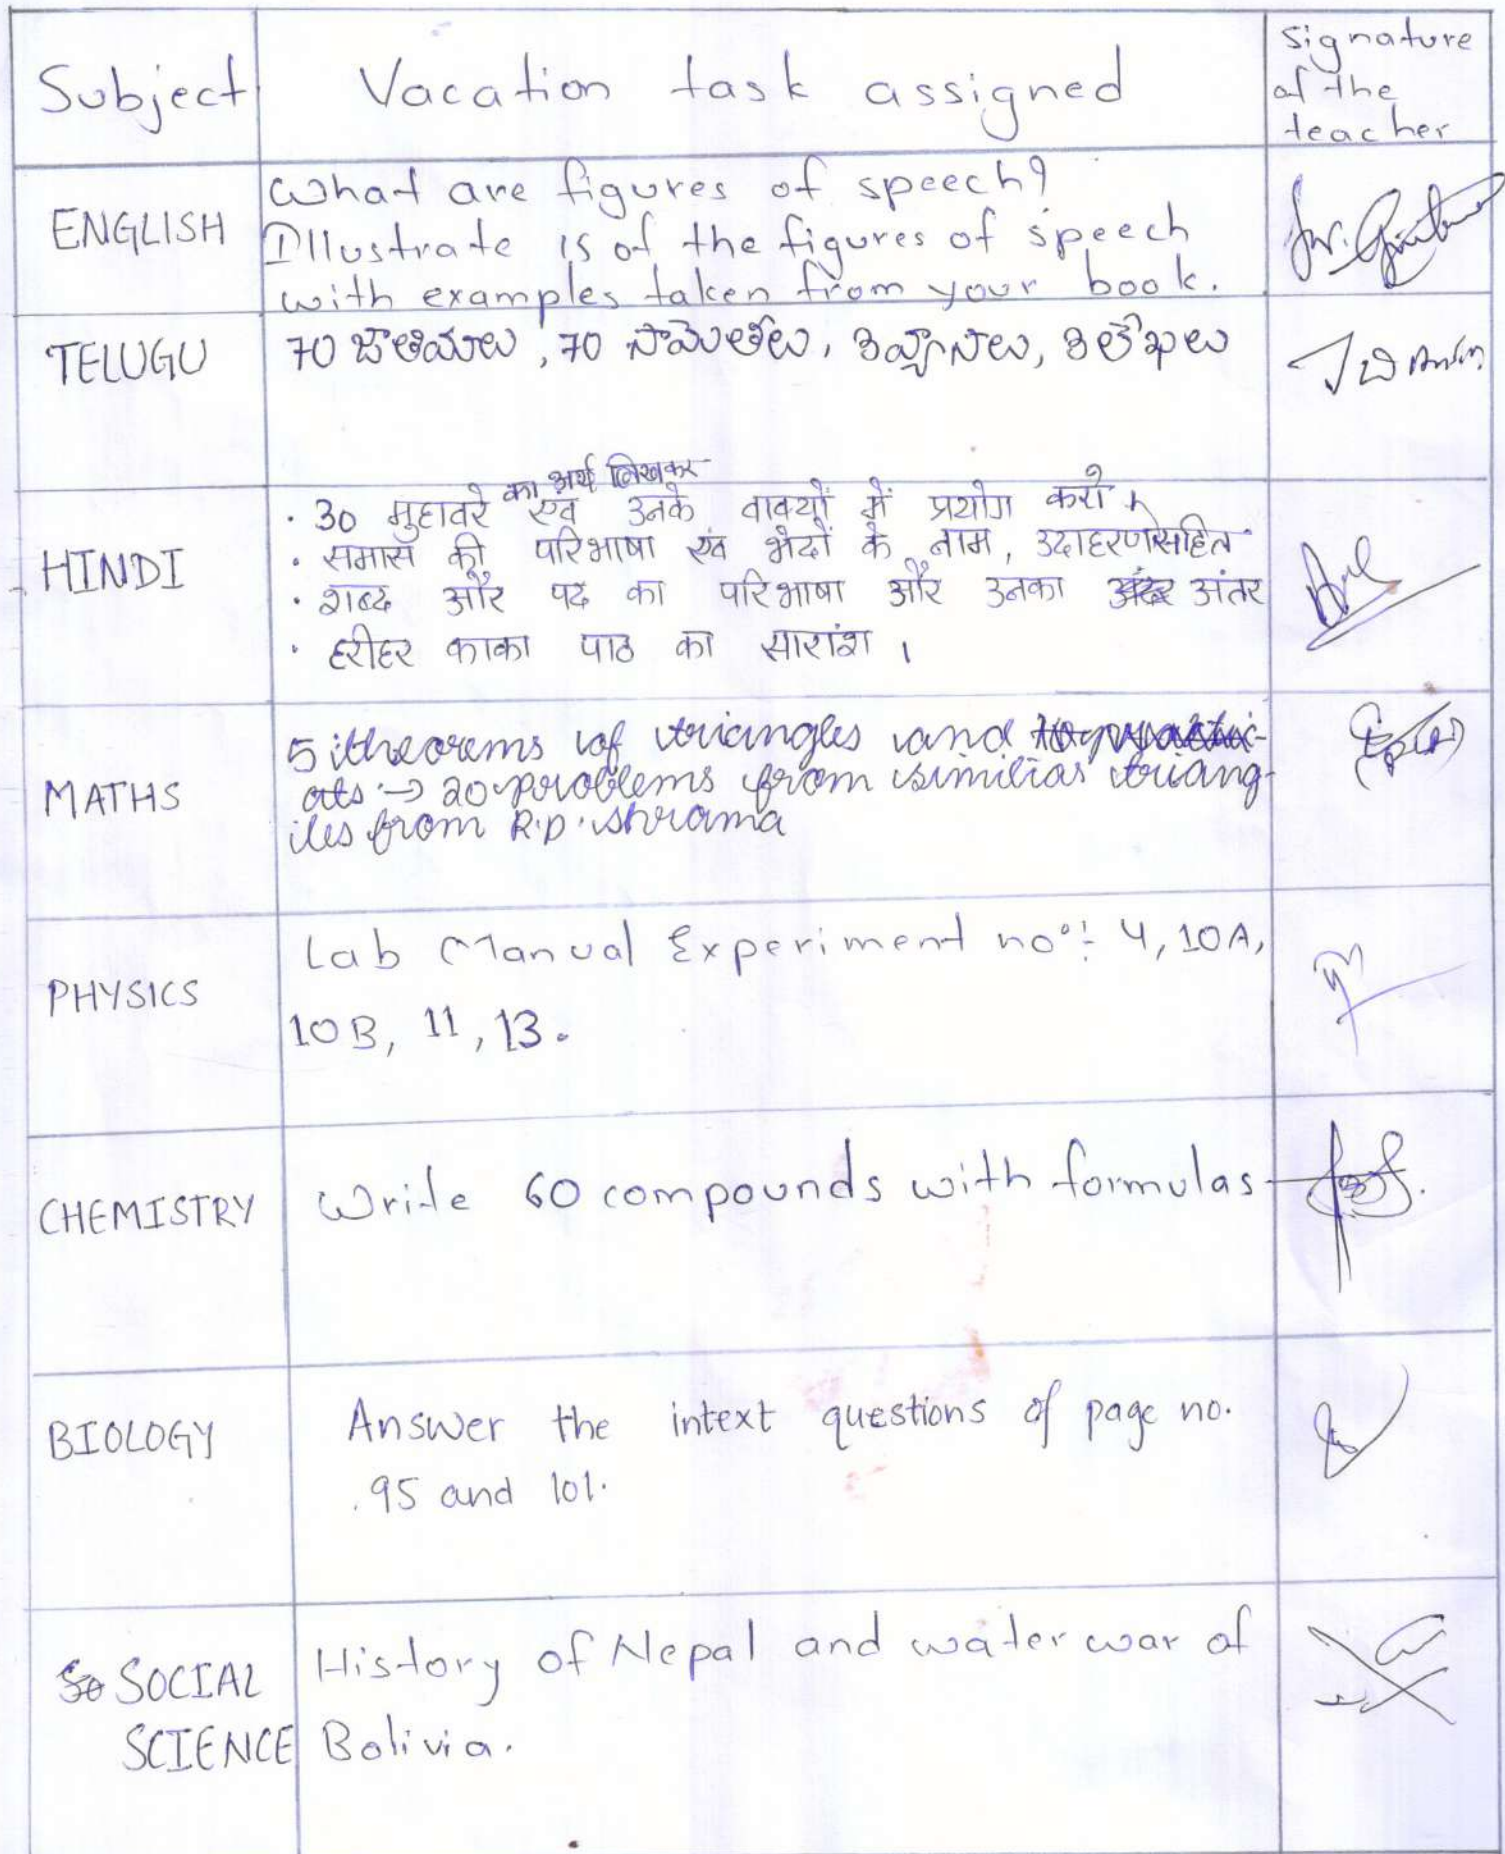 Subject Vacation task assigned signature
of the
teacher
ENGLISH What are figures of speech?
Illustrate 15 of the figures of speech
with examples taken from your book.
TELUGU 70 జాతియాలు, 70 సామెతలు, 3వ్యాసాలు, 3లేఖలు
का अर्थ लिखकर
HINDI
· 30 मुहावरे एवं उनके वाक्यों में प्रयोग करो ।
· समास की परिभाषा एवं भेदों के नाम, उदाहरणसहित
· शब्द और पद का परिभाषा और उनका अंतर
· हरीहर काका पाठ का सारांश ।
MATHS
5 theorems of triangles and
→ 20 problems from similias triang-
les from R.D. shrama
PHYSICS
Lab Manual Experiment no:- 4, 10A,
10B, 11, 13.
CHEMISTRY Write 60 compounds with formulas
BIOLOGY Answer the intext questions of page no.
95 and 101.
SOCIAL History of Nepal and water war of
SCIENCE Bolivia.